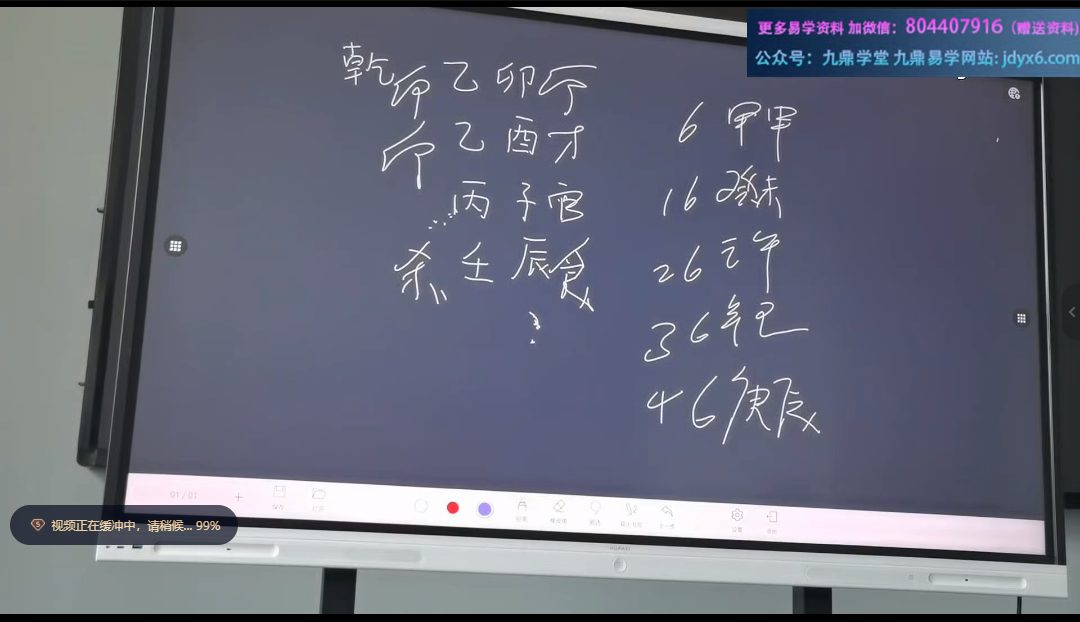 更多易学资料 加微信：804407916（赠送资料）
公众号：九鼎学堂 九鼎易学网站: jdyx6.com
乾
印 乙 卯 印
印 乙 酉 才
丙 子 官
杀 壬 辰 食
6 甲申
16 癸未
26 壬午
36 辛巳
46 庚辰
01 / 01
视频正在缓冲中，请稍候... 99%
HUAWEI